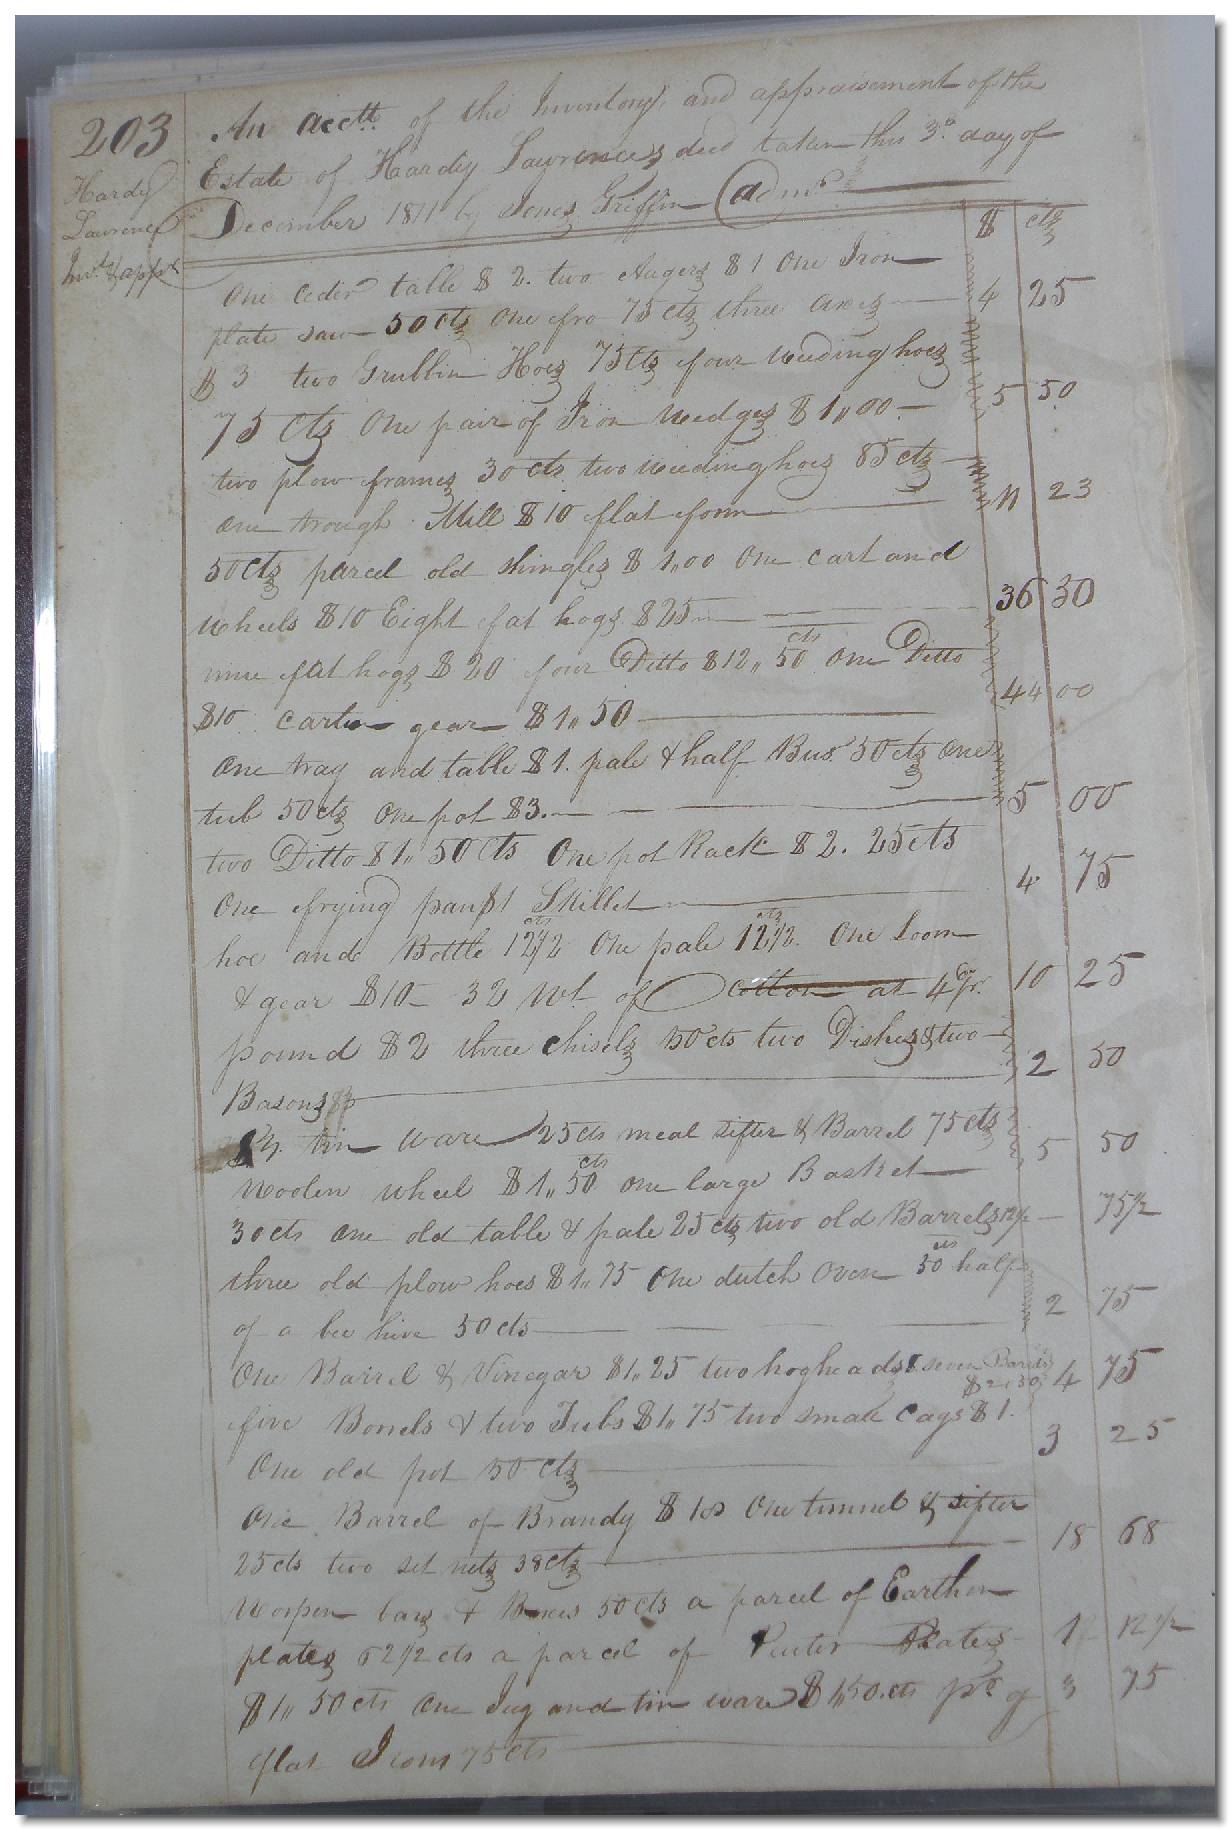 203 An acctt. of the Inventory, and appraisement of the
Hardy Estate of Hardy Lawrence decd taken this 3d. day of
Lawrence December 1811 by Jones Griffin Admr.
Invt. & appt $ cts
One ceder table $ 2. two Augers $ 1 One Iron
plate saw 50 cts One fro 75 cts three axes 4 25
$ 3 two Grubbin Hoes 75 cts four weeding hoes
75 cts One pair of Iron wedges $ 1,,00 5 50
two plow frames 30 cts two weeding hoes 85 cts
one trough Mill $ 10 flat form 11 23
50 cts parcel old shingles $ 1,,00 One cart and
wheels $ 10 Eight fat hogs $ 25 36 30
nine fat hogs $ 20 four Ditto $ 12,, 50 cts One Ditto
$10 gear $ 1,, 50 44 00
One tray and table $ 1. pale & half Bus. 50 cts One
tub 50 cts One pot $3. 5 00
two Ditto $ 1,, 50 cts One pot Rack $ 2. 25 cts
One frying pan $1 Skillet 4 75
hoe and Bottle 12 1/2 cts One pale 12 1/2 cts. One Loom
& gear $10 32 wt. of Cotton at 4 pr. 10 25
pound $ 2 three chisels 50 cts two Dishes & two
Basons 2 50
tin ware 25 cts meal sifter & Barrel 75 cts
Woolen wheel $ 1,, 50 cts one large Basket 5 50
30 cts one old table & pale 25 cts two old Barrels 75 1/2
three old plow hoes $ 1,, 75 One dutch Oven 50 cts half
of a bee hive 50 cts 2 75
One Barrel & Vinegar $ 1,, 25 two hogheads & seven 4 75
five Borrels & two Tubs $ 1,, 75 two small cags $ 1. 3 25
One old pot 50 cts
One Barrel of Brandy $ 18 One tunnel & sifter
25 cts two set nets 38 cts 18 68
& Boxes 50 cts a parcel of Earthen
plates 62 1/2 cts a parcel of Puter Plates 1 12 1/2
$ 1,, 50 cts One Jug and tin ware $ 1,,50 cts pr of 3 75
flat Irons 75 cts